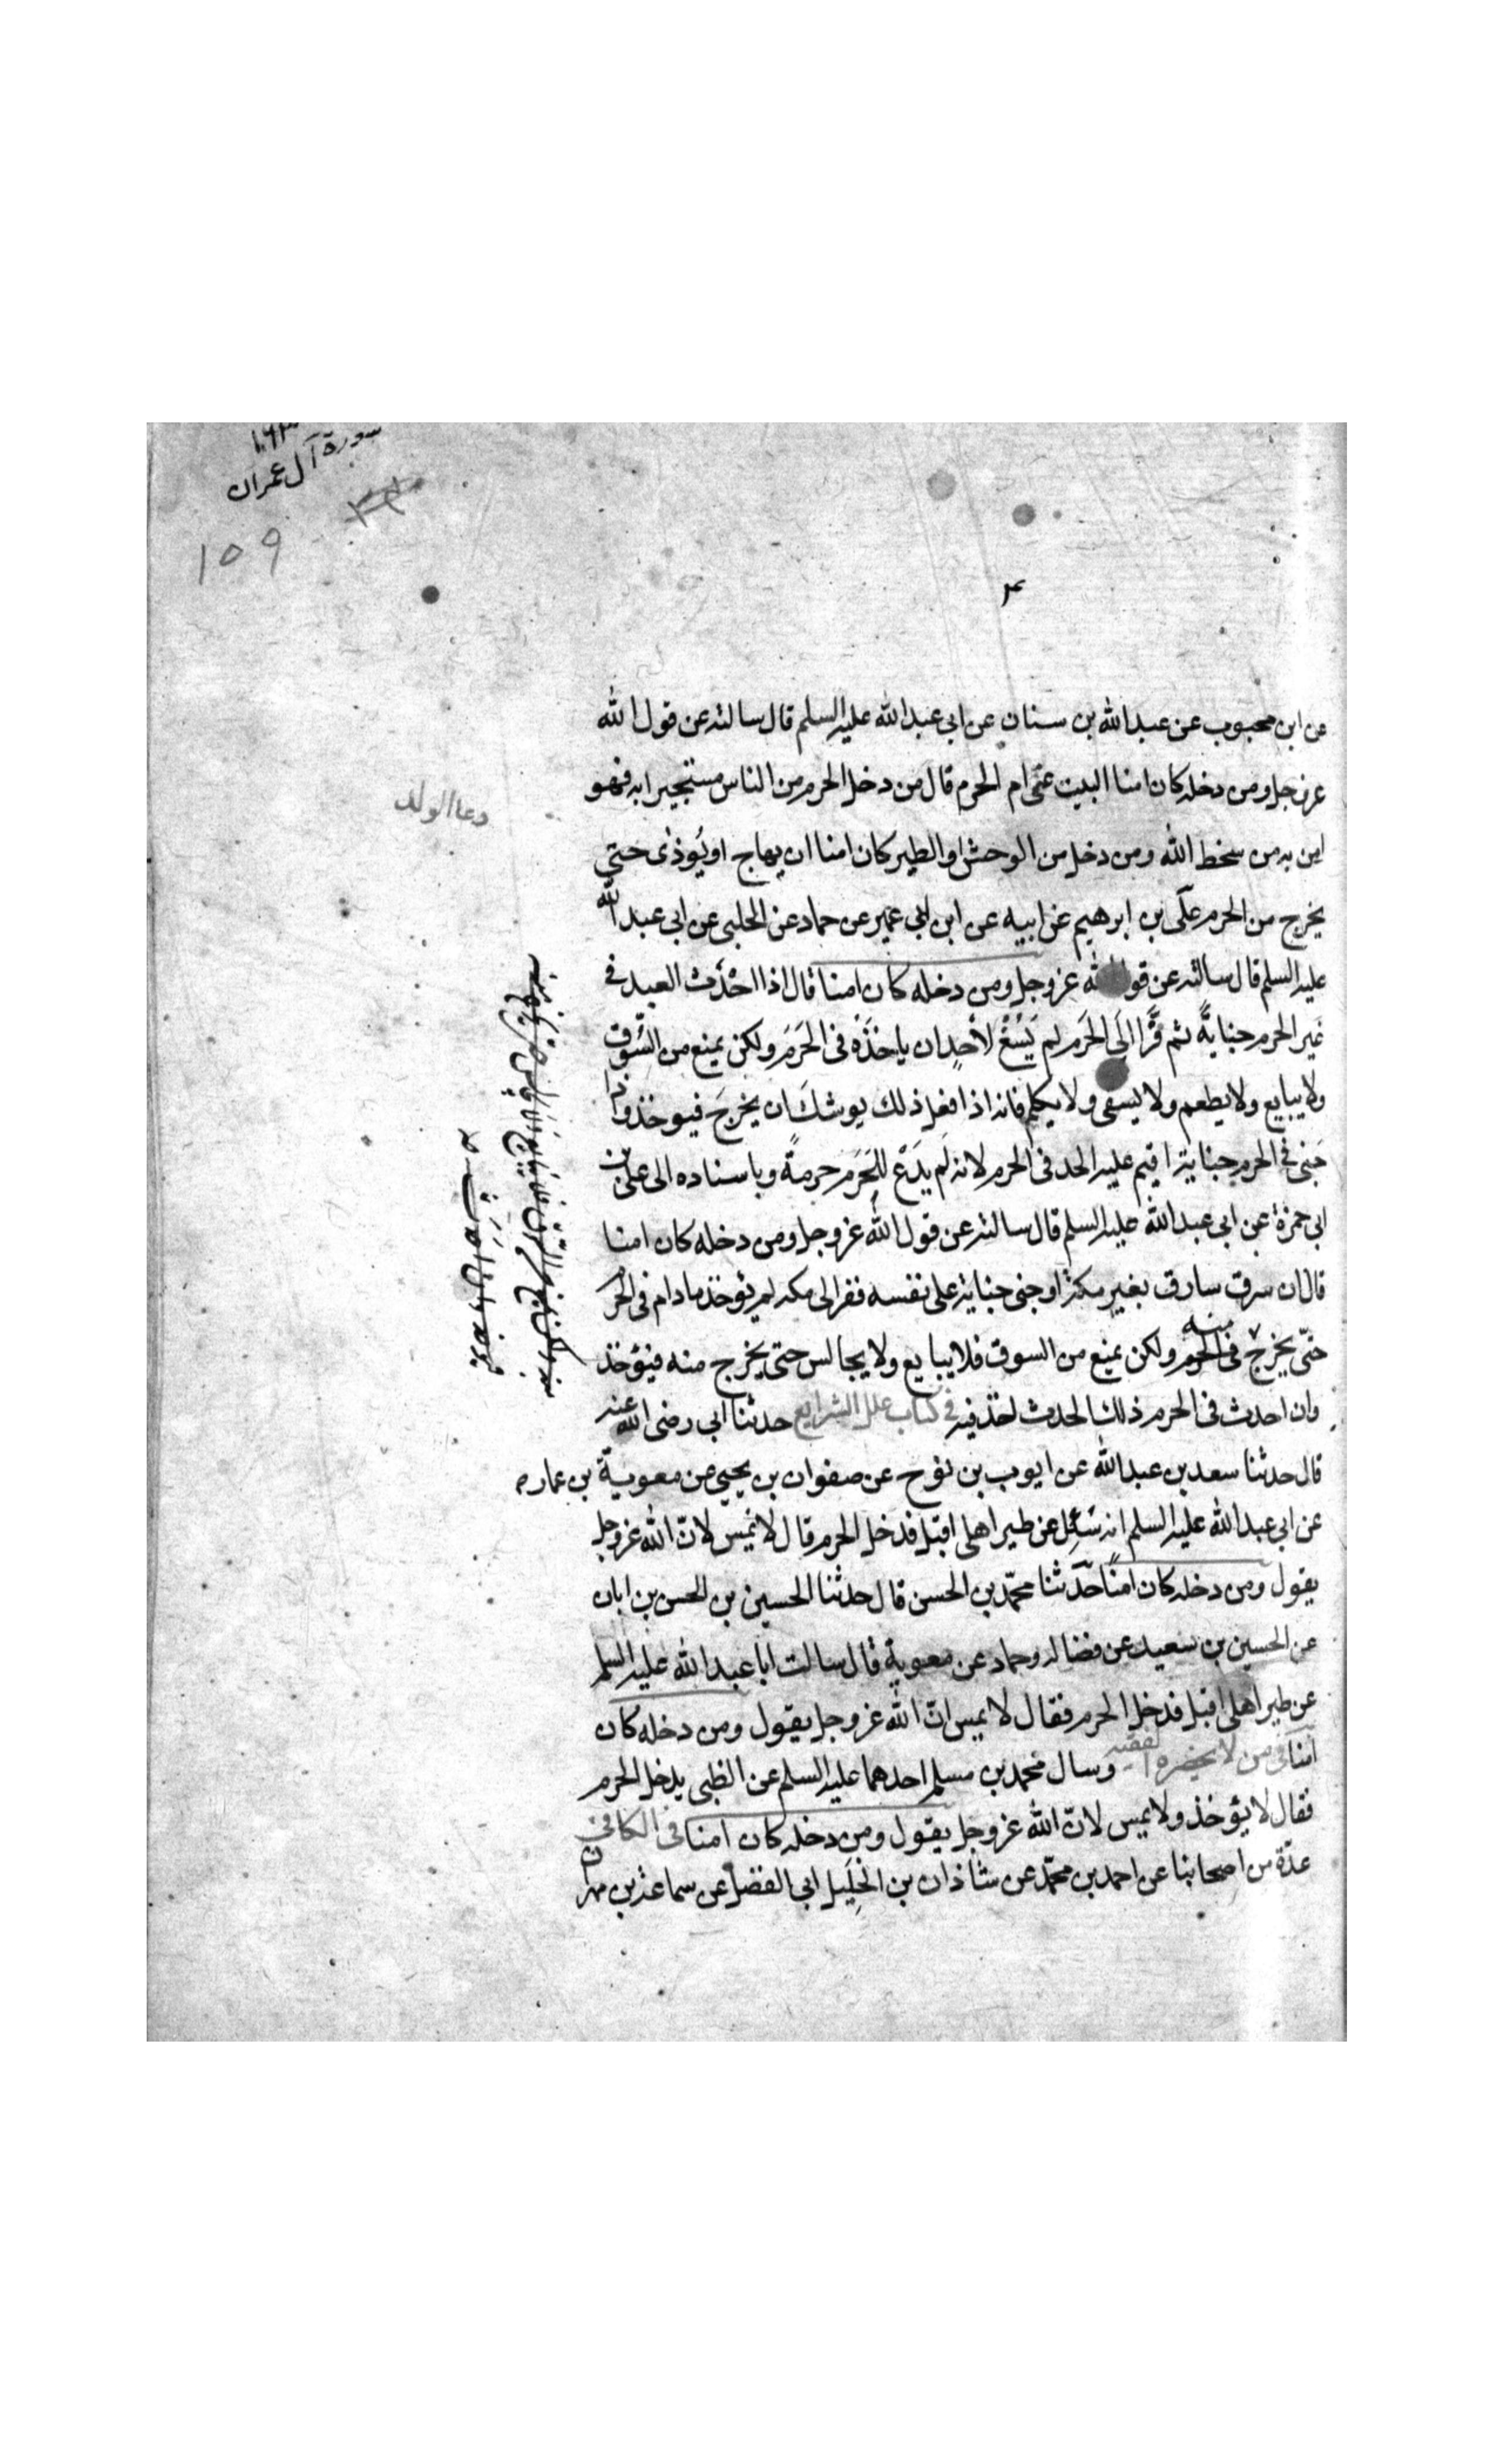 سورة آل عمران
۱۵۹
عن ابن محبوب عن عبد الله بن سنان عن ابي عبد الله عليه السلم قال سالته عن قول الله
عز وجل ومن دخله كان امنا البيت عنى ام الحرم قال من دخل الحرم من الناس مستجيرا به فهو
امن به من سخط الله ومن دخل من الوحش او الطير كان امنا ان يهاج او يُوذى حتى
يخرج من الحرم علّى بن ابرهيم عن ابيه عن ابن ابي عمير عن حماد عن الحلبى عن ابى عبد الله
عليه السلم قال سالته عن قول الله عز وجل ومن دخله كان امنا قال اذا احْدَث العبد فى
غَير الحرم جنايةً ثم فَرَّ الَى الحَرَم لم يَسُغْ لأحدٍ ان ياخذَهُ فى الحَرَم ولكن يمنع من السُّوق
ولا يبايع ولا يطعم ولا يسقى ولا يكلم فانه اذا فعل ذلك يوشكَ ان يخرجَ فيوخذ واذا
جَنى فى الحرم جناية اقيم عليه الحد فى الحرم لانه لَم يَدَعْ للحَرَم حرمةً وباسناده الى على بن
ابى حمزة عن ابى عبد الله عليه السلم قال سالته عن قول الله عز وجل ومن دخله كان امنا
قال ان سرق سارق بغير مكة او جنى جناية على نفسه ففر الى مكه لم يؤخذ ما دام فى الحرم
حتّى يخرج فى الحرم منه ولكن يمنع من السوق فلا يبايع ولا يجالس حتى يخرج منه فيؤخذ
وان احدث فى الحرم ذلك الحدث اخذ فيه فى كتاب علل الشرايع حدثنا ابى رضى الله عنه
قال حدثنا سعد بن عبد الله عن ايوب بن نوح عن صفوان بن يحيى عن معوية بن عمار
عن ابى عبد الله عليه السلم انه سُئِل عن طير اهلى اقبل فدخل الحرم قال لا يُمس لانّ الله عز وجل
يقول ومن دخله كان امنًا حدّثنا محمّد بن الحسن قال حدثنا الحسين بن الحسن بن ابان
عن الحسين بن سعيد عن فضاله وحماد عن معوية قال سالت ابا عبد الله عليه السلم
عن طير اهلى اقبل فدخل الحرم فقال لا يمس انّ الله عز وجل يقول ومن دخله كان
امنا فى من لا يحضره الفقيه وسال محمد بن مسلم احدهما عليه السلم عن الظبى يدخل الحرم
فقال لا يؤخذ ولا يمس لانّ الله عز وجل يقول ومن دخله كان امنا فى الكافى
عدّة من اصحابنا عن احمد بن محمّد عن شاذان بن الخَلِيل ابى الفضل عن سماعة بن مهران